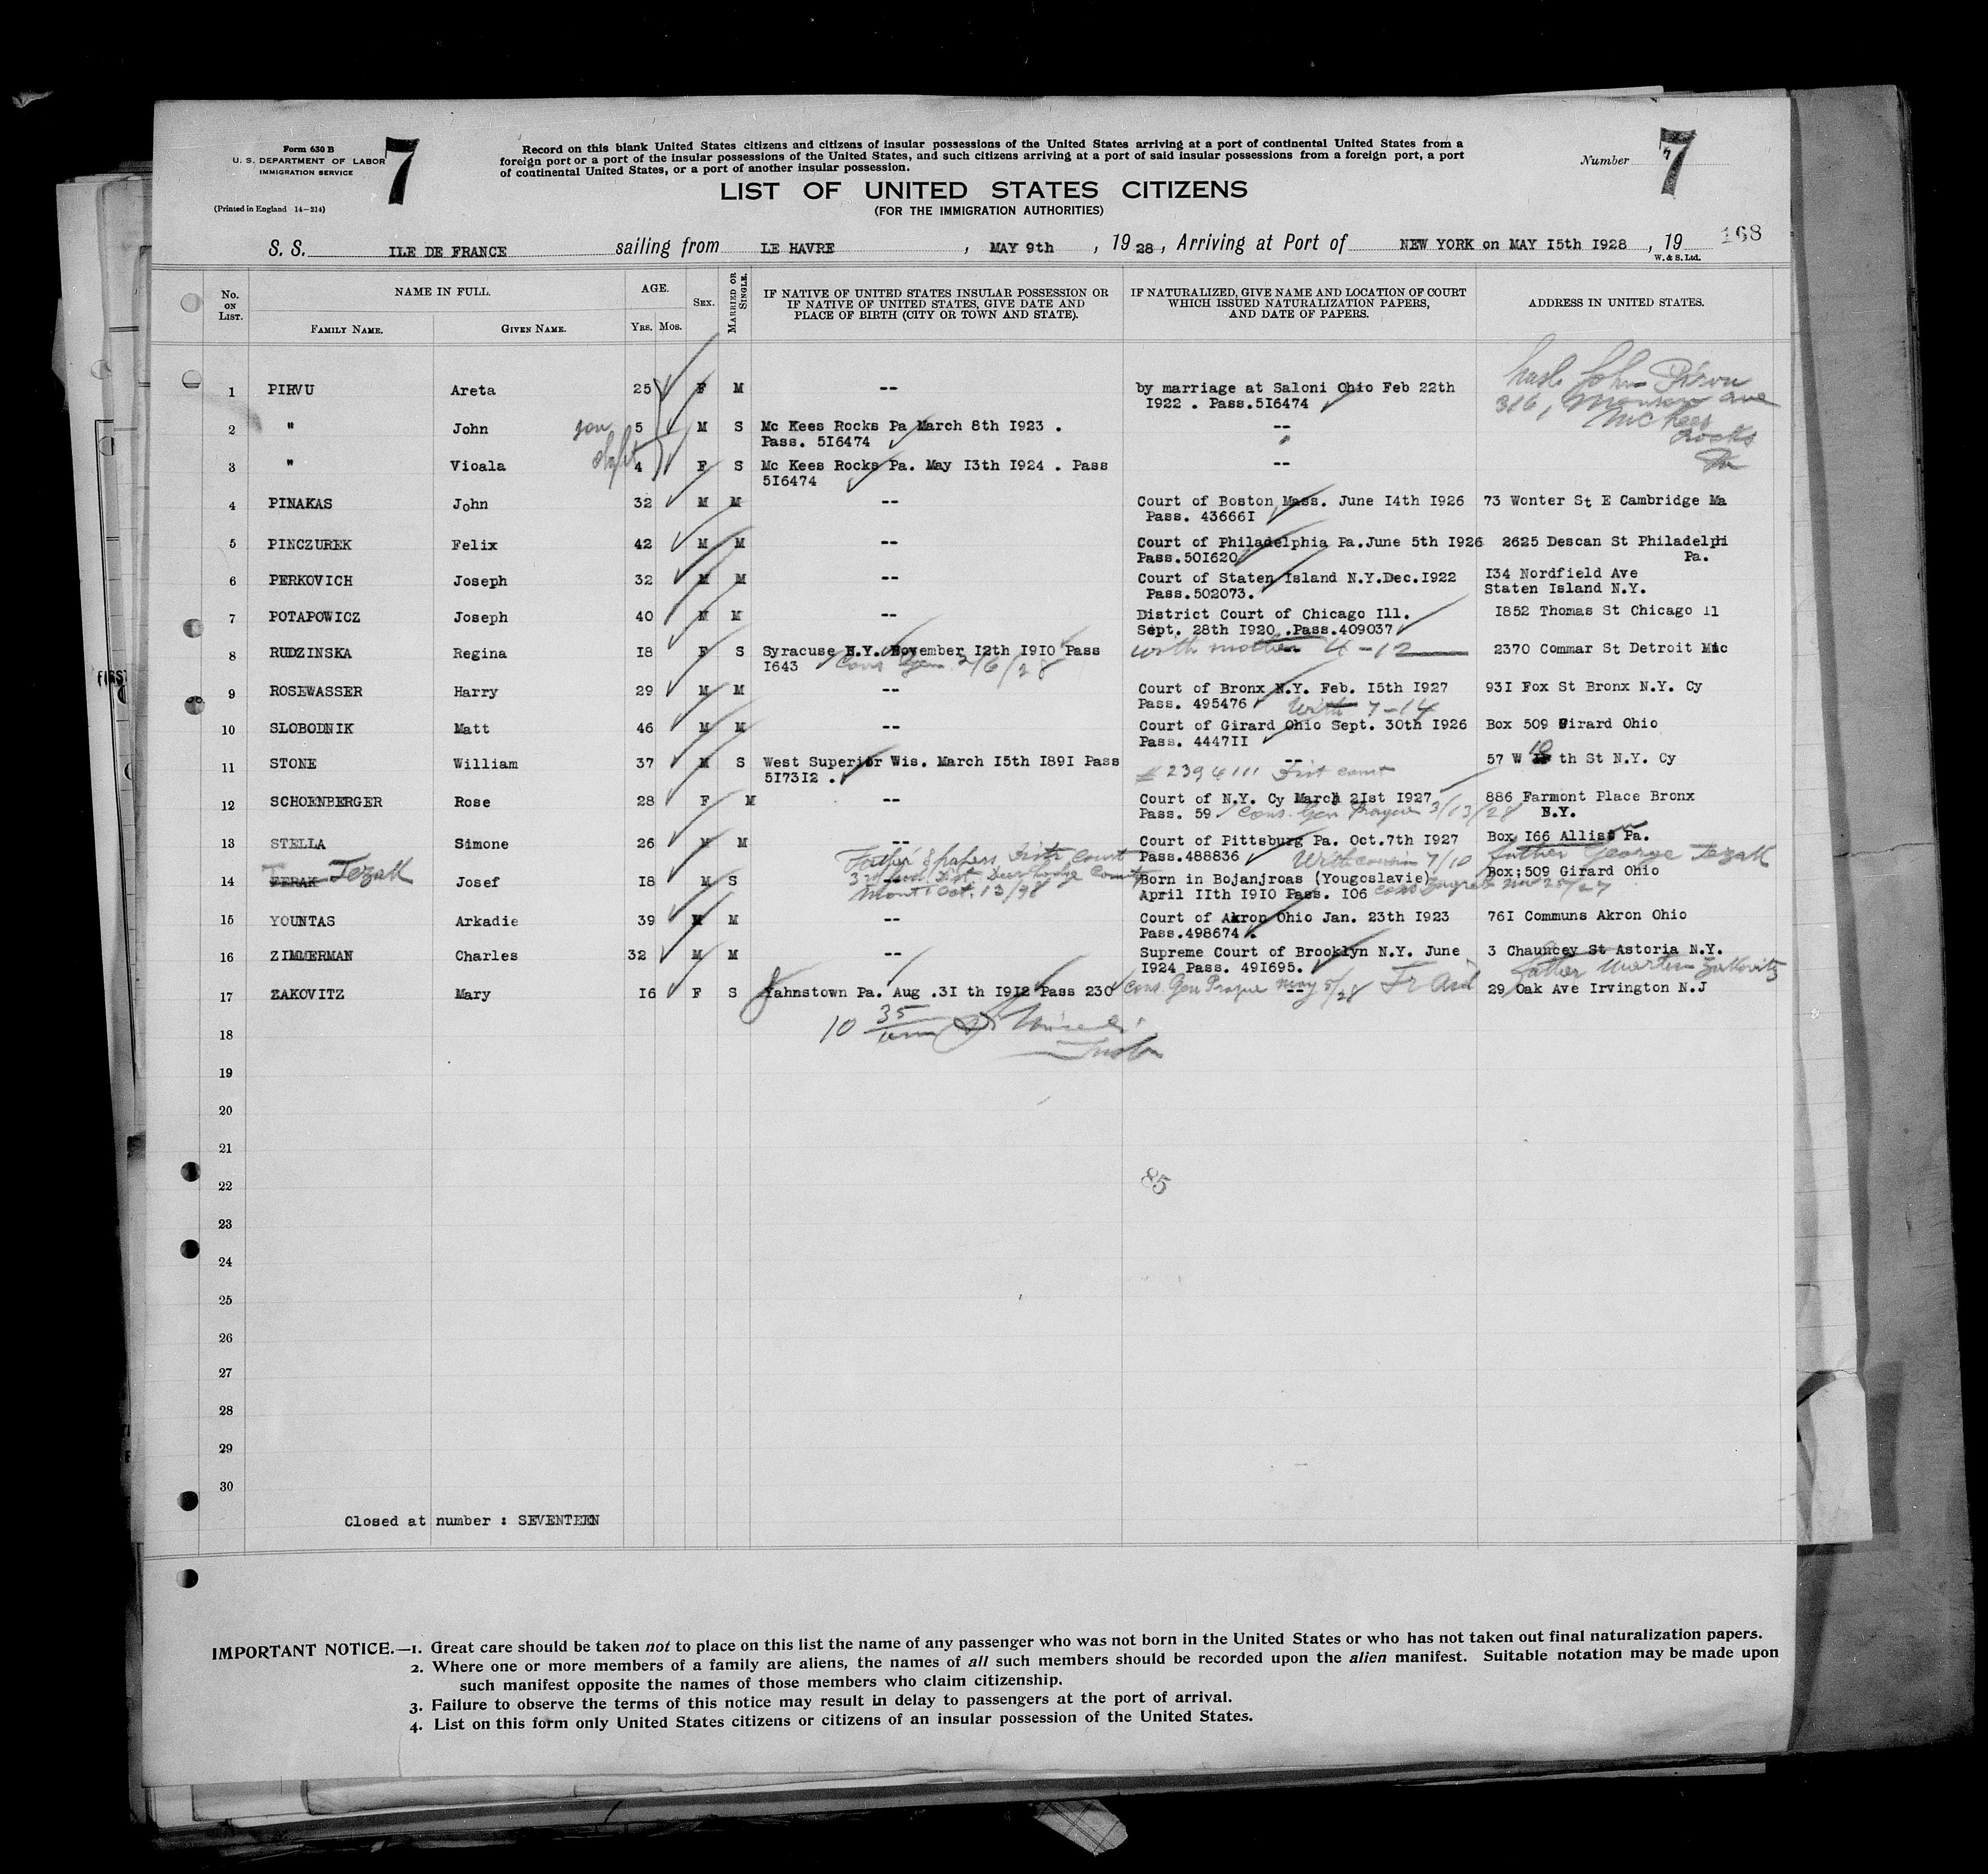 Form 630 B
U. S. DEPARTMENT OF LABOR
IMMIGRATION SERVICE
7
(Printed in England 14-214)
Record on this blank United States citizens and citizens of insular possessions of the United States arriving at a port of continental United States from a
foreign port or a port of the insular possessions of the United States, and such citizens arriving at a port of said insular possessions from a foreign port, a port
of continental United States, or a port of another insular possession.
Number 7
LIST OF UNITED STATES CITIZENS
(FOR THE IMMIGRATION AUTHORITIES)
168
S. S. ILE DE FRANCE sailing from LE HAVRE , MAY 9th , 19 28 , Arriving at Port of NEW YORK on MAY I5th I928 , 19
W. & S. Ltd.
No. ON LIST. NAME IN FULL. FAMILY NAME. GIVEN NAME. AGE. YRS. MOS. SEX. MARRIED OR SINGLE.
IF NATIVE OF UNITED STATES INSULAR POSSESSION OR
IF NATIVE OF UNITED STATES, GIVE DATE AND
PLACE OF BIRTH (CITY OR TOWN AND STATE).
IF NATURALIZED, GIVE NAME AND LOCATION OF COURT
WHICH ISSUED NATURALIZATION PAPERS,
AND DATE OF PAPERS.
ADDRESS IN UNITED STATES.
1 PIRVU Areta 25 F M -- by marriage at Saloni Ohio Feb 22th husb John Pirvu
I922 . Pass.5I6474 316, Monroe ave
McKees
Rocks
Pa
2 " John son 5 M S Mc Kees Rocks Pa March 8th I923 . --
Pass. 5I6474
3 " Vioala 4 F S Mc Kees Rocks Pa. May I3th I924 . Pass --
5I6474
4 PINAKAS John 32 M M -- Court of Boston Mass. June I4th I926 73 Wonter St E Cambridge Ma
Pass. 43666I
5 PINCZUREK Felix 42 M M -- Court of Philadelphia Pa.June 5th I926 2625 Descan St Philadelphi
Pass.50I620 Pa.
6 PERKOVICH Joseph 32 M M -- Court of Staten Island N.Y.Dec.I922 I34 Nordfield Ave
Pass.502073. Staten Island N.Y.
7 POTAPOWICZ Joseph 40 M M -- District Court of Chicago Ill. I852 Thomas St Chicago Il
Sept. 28th I920 .Pass.409037
8 RUDZINSKA Regina I8 F S Syracuse N.Y. November I2th I9I0 Pass with mother 4-12 2370 Commar St Detroit Mic
I643 Cons Gen. 2/6/28
9 ROSEWASSER Harry 29 M M -- Court of Bronx N.Y. Feb. I5th I927 93I Fox St Bronx N.Y. Cy
Pass. 495476 With 7-14
10 SLOBODNIK Matt 46 M M -- Court of Girard Ohio Sept. 30th I926 Box 509 Girard Ohio
Pass. 4447II
11 STONE William 37 M S West Superior Wis. March I5th I89I Pass -- 57 W 10 th St N.Y. Cy
5I73I2 .
12 SCHOENBERGER Rose 28 F M -- Court of N.Y. Cy March 2Ist I927 886 Farmont Place Bronx
Pass. 59 Cons. Gen Prague 3/13/28 N.Y.
13 STELLA Simone 26 M M -- Court of Pittsburg Pa. Oct.7th I927 Box I66 Alliss Pa.
Pass.488836 With cousin 7/10 father George Tezak
14 Tezak Josef I8 M S Born in Bojanjroas (Yougoslavie) Box;509 Girard Ohio
Father's papers Dist Court
Mont Oct. 13/98
April IIth I9I0 Pass. I06 Cons Zagreb
15 YOUNTAS Arkadie 39 M M -- Court of Akron Ohio Jan. 23th I923 76I Communs Akron Ohio
Pass.498674 .
16 ZIMMERMAN Charles 32 M M -- Supreme Court of Brooklyn N.Y. June 3 Chauncey St Astoria N.Y.
I924 Pass. 49I695. father Martin Zakovitz
17 ZAKOVITZ Mary I6 F S Yahnstown Pa. Aug .3I th I9I2 Pass 230 Cons. Gen Prague May 5/28 -- 29 Oak Ave Irvington N.J
18
19
20
21
22 85
23
24
25
26
27
28
29
30
Closed at number : SEVENTEEN
IMPORTANT NOTICE.—1. Great care should be taken not to place on this list the name of any passenger who was not born in the United States or who has not taken out final naturalization papers.
2. Where one or more members of a family are aliens, the names of all such members should be recorded upon the alien manifest. Suitable notation may be made upon
such manifest opposite the names of those members who claim citizenship.
3. Failure to observe the terms of this notice may result in delay to passengers at the port of arrival.
4. List on this form only United States citizens or citizens of an insular possession of the United States.